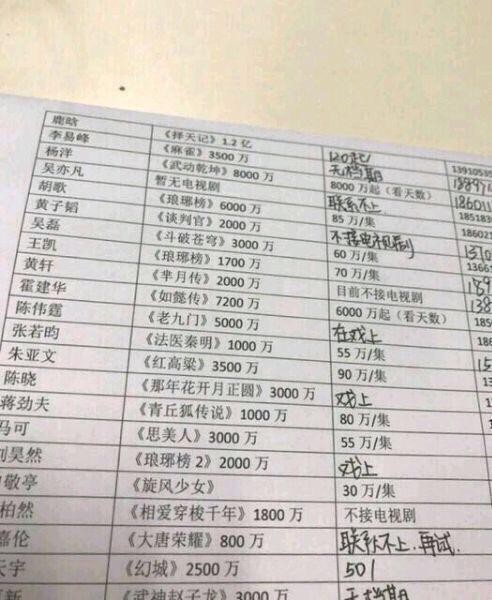 鹿晗 《择天记》1.2 亿 120起/ 13910535
李易峰 《麻雀》3500 万 无档期
杨洋 《武动乾坤》8000 万 8000 万起（看天数） 186011
吴亦凡 暂无电视剧 联系不上 185183
胡歌 《琅琊榜》6000 万 85 万/集 186021
黄子韬 《谈判官》2000 万 不接电视剧 1370
吴磊 《斗破苍穹》3000 万 60 万/集 1366
王凯 《琅琊榜》1700 万 70 万/集 189
黄轩 《芈月传》2000 万 目前不接电视剧 138
霍建华 《如懿传》7200 万 6000 万起（看天数） 186
陈伟霆 《老九门》5000 万 在戏上
张若昀 《法医秦明》1000 万 55 万/集 18
朱亚文 《红高粱》3500 万 90 万/集
陈晓 《那年花开月正圆》3000 万 戏上
蒋劲夫 《青丘狐传说》1000 万 80 万/集
马可 《思美人》3000 万 55 万/集
刘昊然 《琅琊榜 2》2000 万 戏上
敬亭 《旋风少女》 30 万/集
柏然 《相爱穿梭千年》1800 万 不接电视剧
嘉伦 《大唐荣耀》800 万 联系不上.再试.
天宇 《幻城》2500 万 50/
新 《武神赵子龙》3000 万 无档期